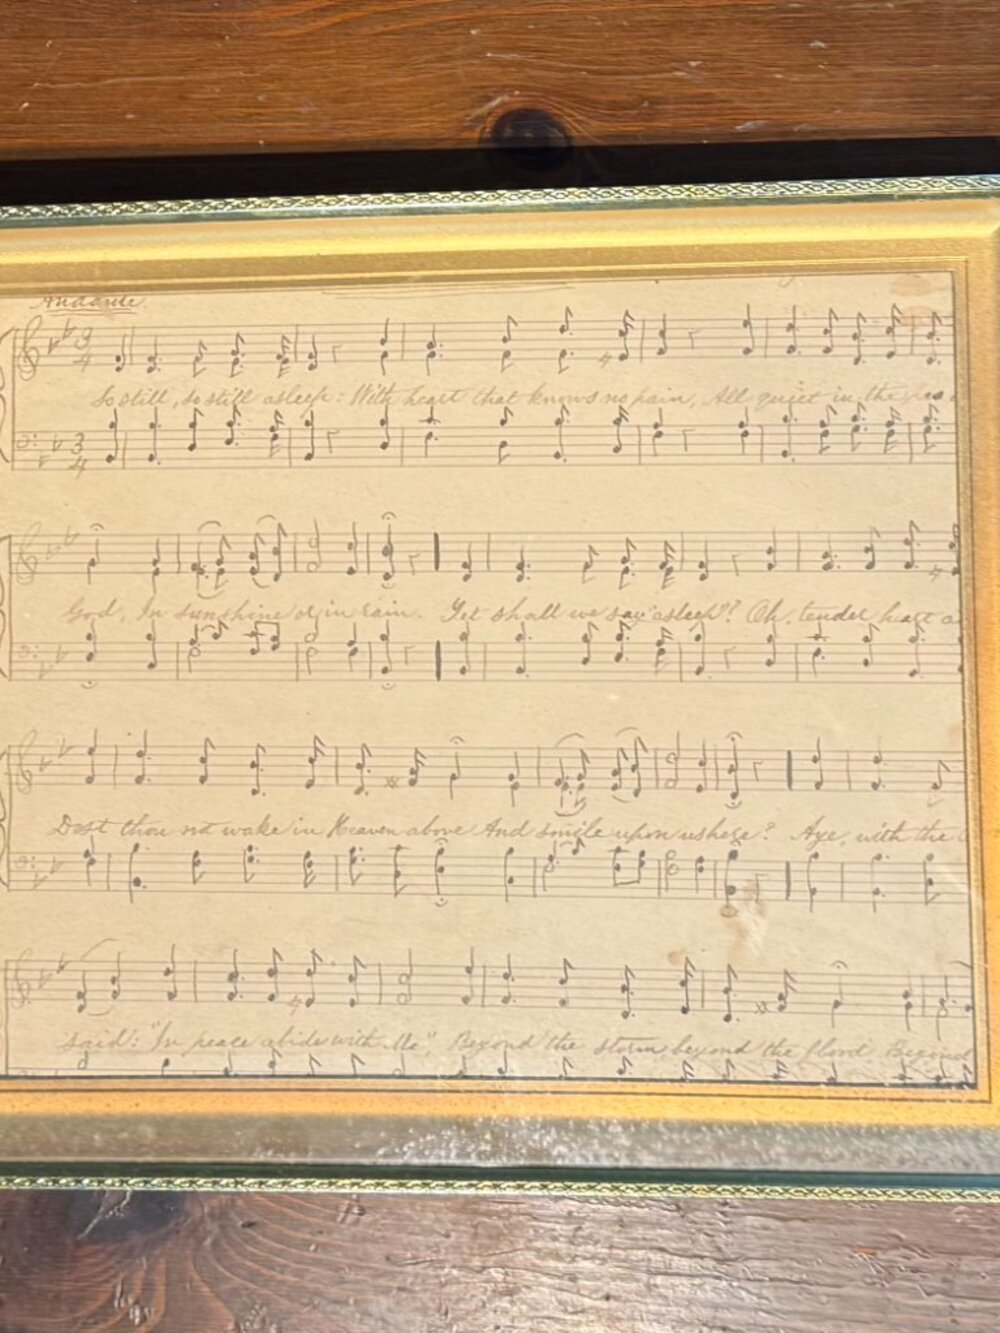 Andante
3 4
So still, so still asleep: With heart that knows no pain, All quiet in the
3 4
God, In sunshine or in rain. Yet shall we say "asleep"? Oh, tender heart a
Dost thou not wake in Heaven above And smile upon us here? Aye, with the
said: "In peace abide with Me", Beyond the storm, beyond the flood Beyond